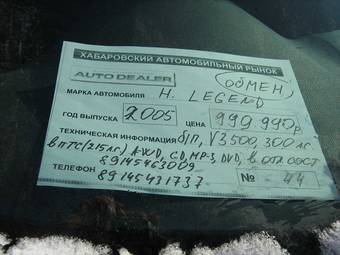 ХАБАРОВСКИЙ АВТОМОБИЛЬНЫЙ РЫНОК
AUTO DEALER
ОБМЕН
МАРКА АВТОМОБИЛЯ H. LEGEND
ГОД ВЫПУСКА 2005 ЦЕНА 999.990р
ТЕХНИЧЕСКАЯ ИНФОРМАЦИЯ б/п, V3500, 300 лс.
в ПТС (215 лс) AWD, CD, MP-3, DVD, в отл сост
89145463009
ТЕЛЕФОН 89145431737
№ 44